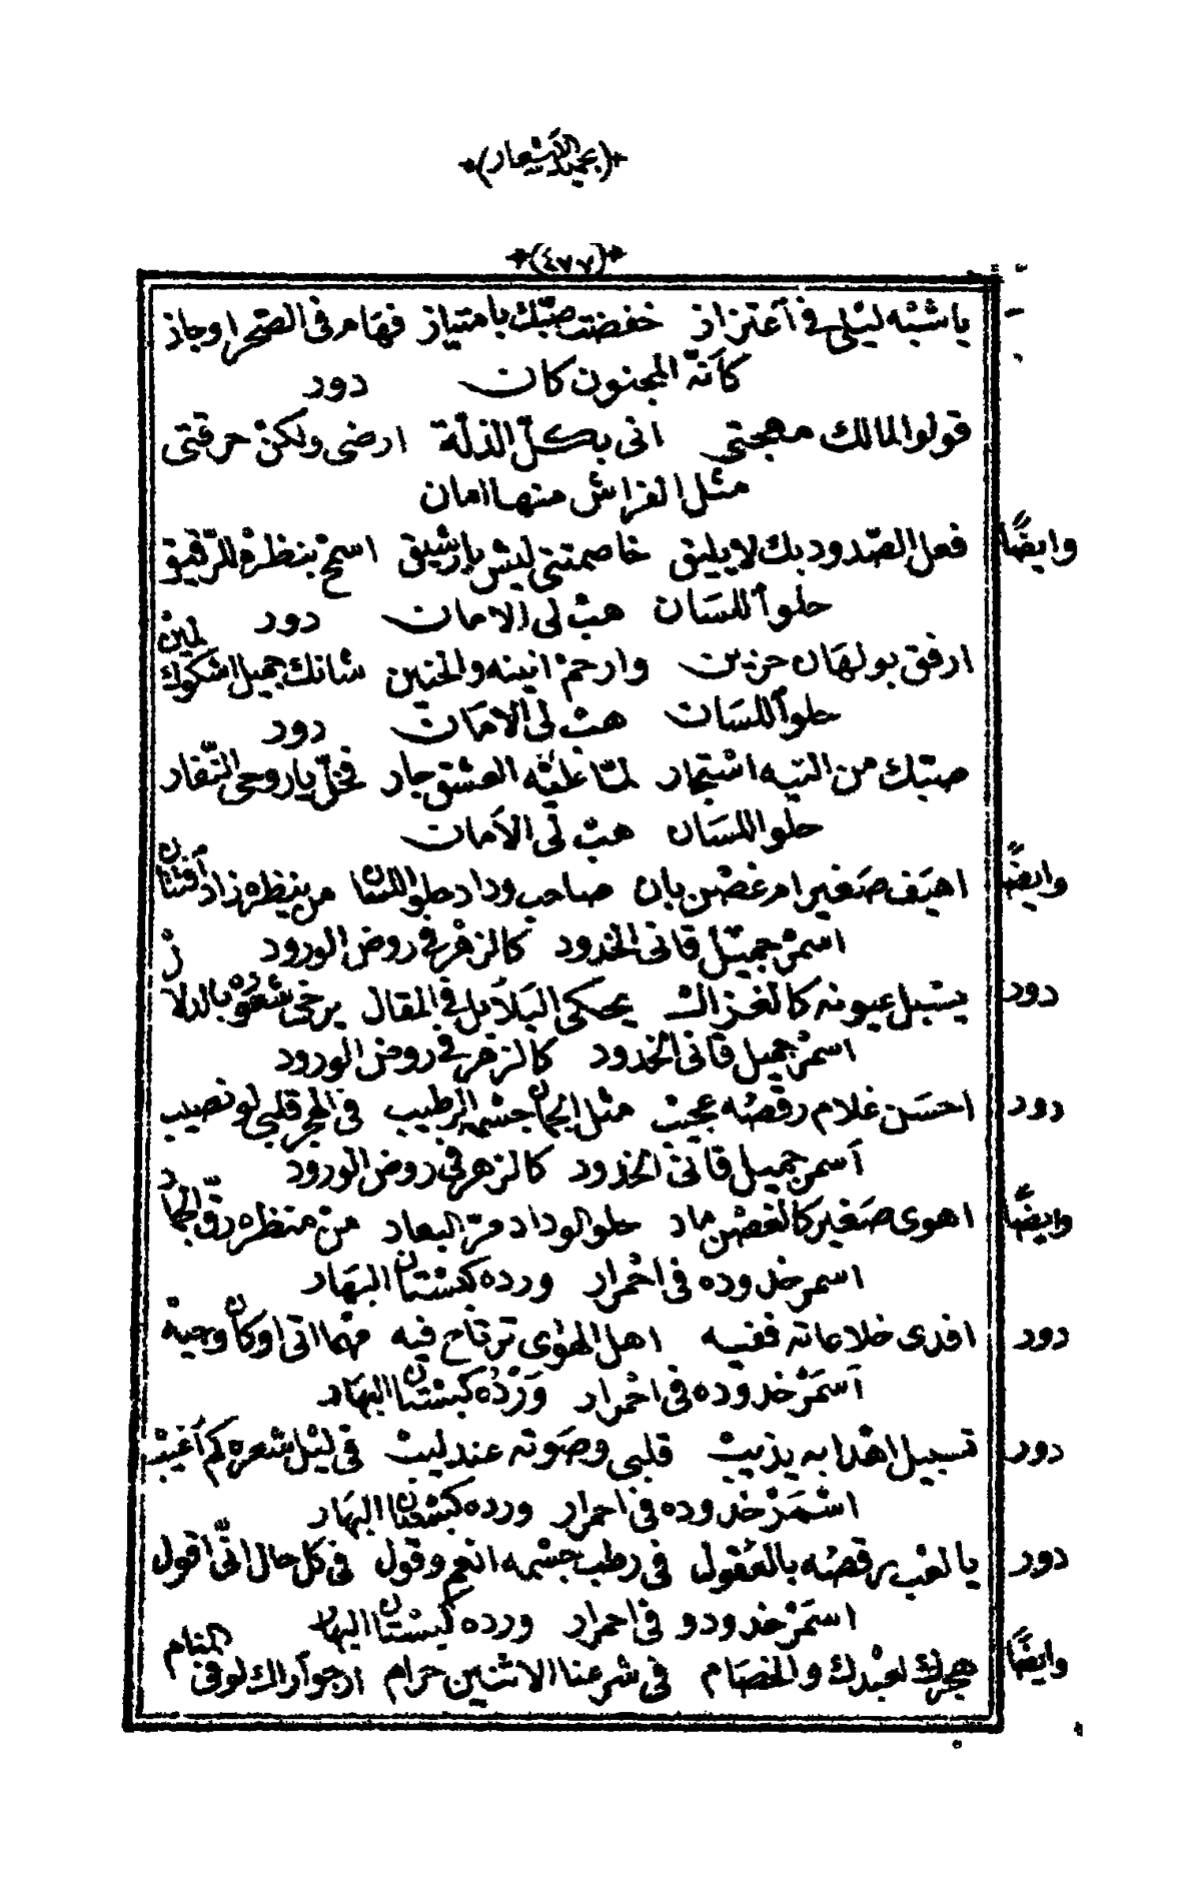 *(بحميد الاشعار)*
*(٤٧٧)*
يا شبه ليلى في أعتزاز خفضت صبّك بامتياز فهام فى الصّحرا وجاز
كأنّه المجنون كان دور
قولوا المالك مهجتى انى بكلّ الذلّة ارضى ولكنْ حرقتى
مثل الفراش منها امان
وايضًا فعل الصّدود بك لا يليق خاصمتنى ليش يا رشيق اسمحْ بنظرهْ للرّقيق
حلو أللسَان هبْ لى الامان دور
ارفق بولهَان حزين وارحمْ انينه والحنين شانك جميل اشكوك لمينْ
حلو أللسَان هبْ لى الامَان دور
صبّك من التيه اسْتجار لمّا عليْه العشق جار فخلّ يا روحى النّفار
حلو اللسَان هبْ لى الأمان
وايضًا اهيَف صغير ام غصْن بان صاحب وداد حلو اللسان من ينظره زاد أفتنان
اسمرْ جميْل قانى الخدود كالزهْر فى روض الورود
دور يسْبل عيونه كالغزال يحكى البَلاَبل فى المقال يرخى شعوره بالدلال
اسمرْ جميل قانى الخدود كالزهر فى روض الورود
دور احسَن غلام رقصُه عجيبْ مثل الجمان جسْمه الرطيب فى الهجر قلبى لو نصيب
أسمر جميل قانىْ الخدود كالزهر فى روض الورود
وايضًا اهوى صغير كالغصْن ماد حلو الوداد مرّ البعاد منْ منظره رقّ الجماد
اسمر خدوده فى احْمرار ورده كبسْتان البهَار
دور افدى خلاعاته ففيه اهل الهوٰى ترتاح فيه مهْما اتى او كان وجيهْ
أسَمرْ خدوده فى احْمرار وَرْدُه كبسْتان البهَار
دور تسبيل اهْدابه يذيبْ قلبى وصَوته عندليبْ فى ليْل شعره كم أغيبْ
اسْمَرْ خدوده فى احمرار ورده كبسْتان البهَار
دور يا لعْب رقصُه بالعُقول فى رطب جسْمه انعم وقول فى كل حال انّى اقول
اسمَرْ خدودو فى احمرار ورده كبسْتان البهار
وايضًا هجرك لعبْدك والخصَام فى شرعنا الاثنين حرام ارجو أراك لو فى المنام